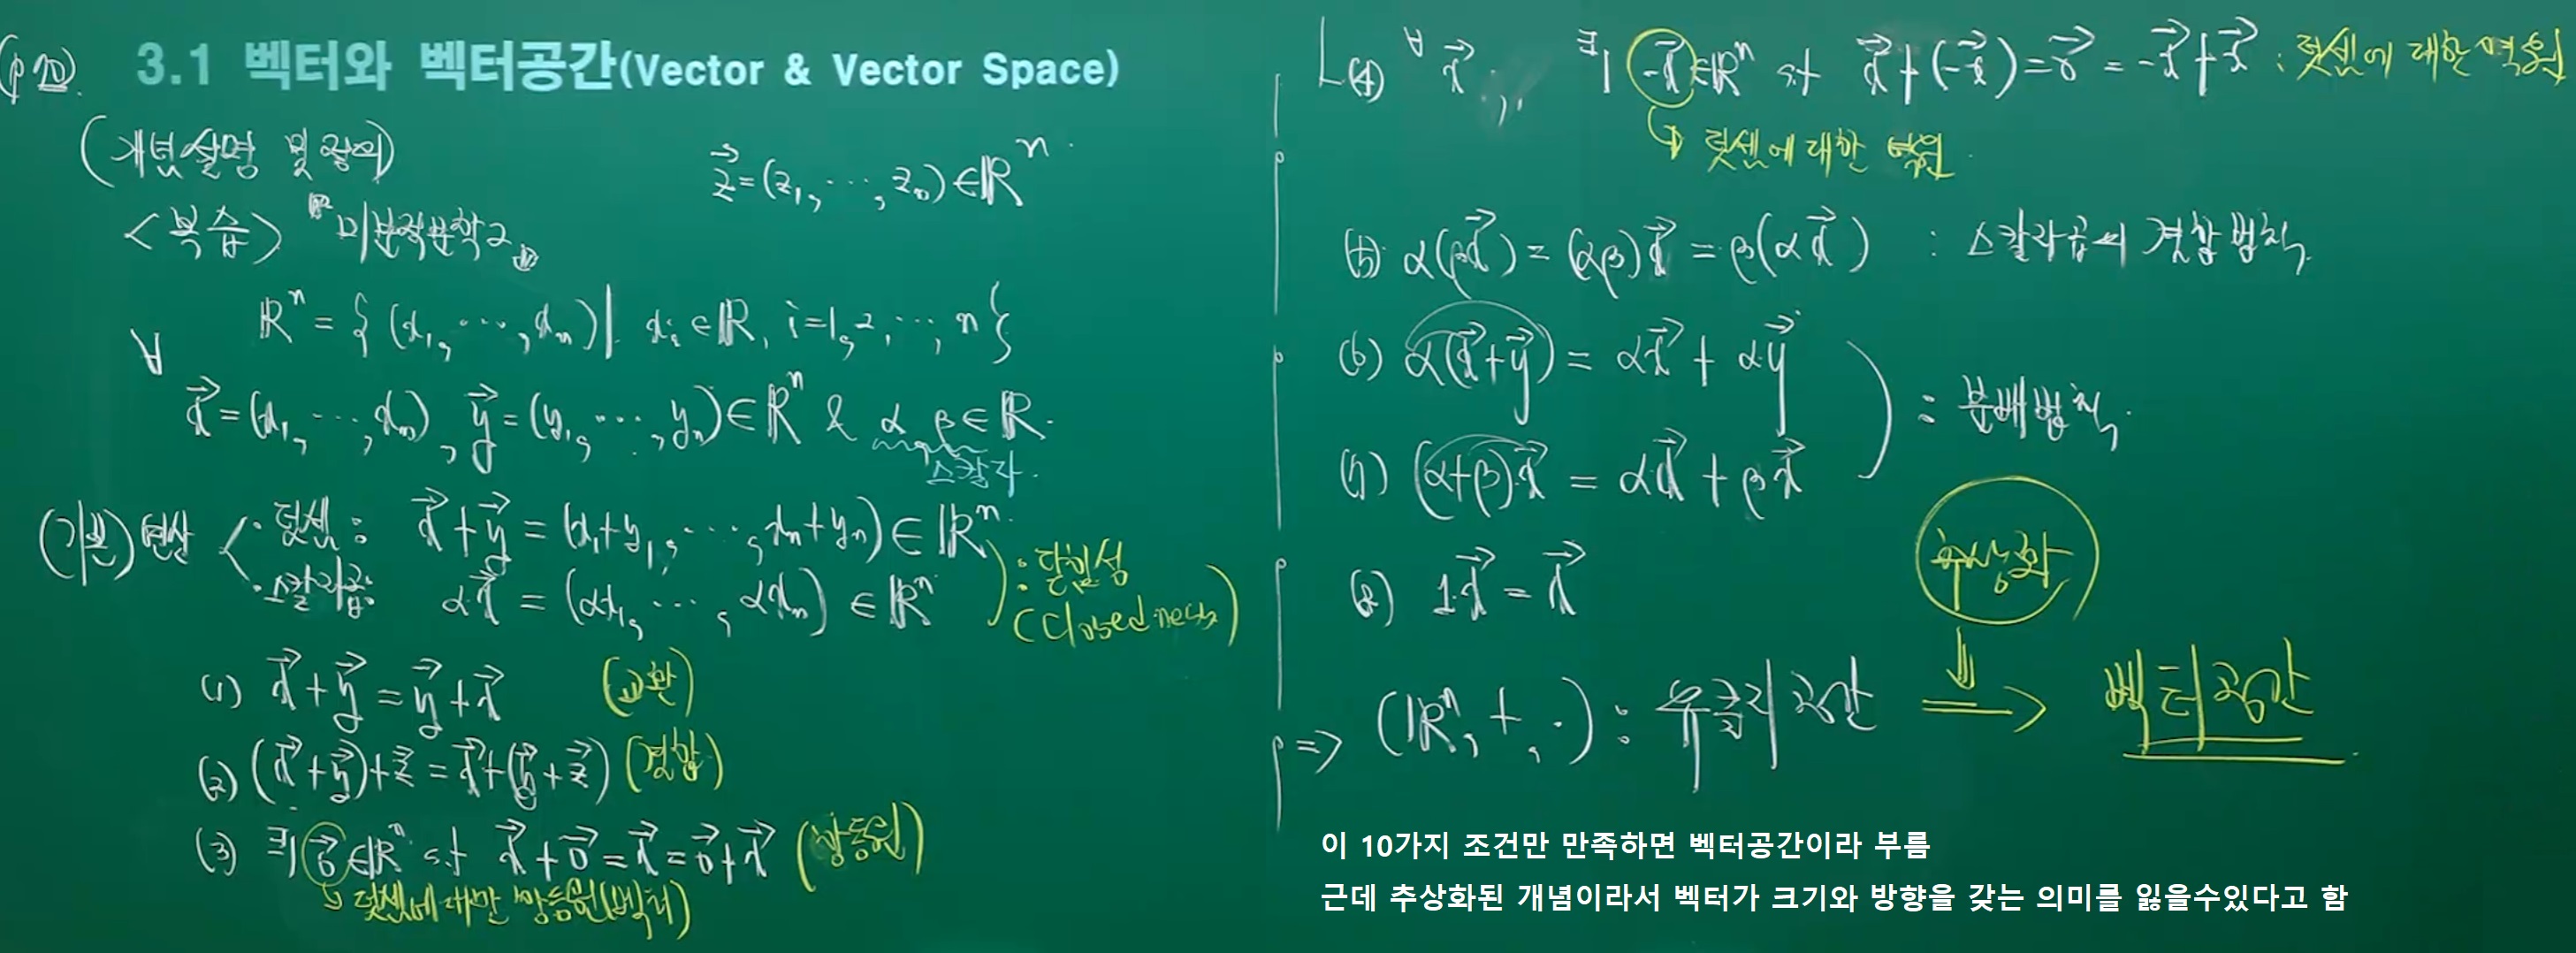 (p 70)
3.1 벡터와 벡터공간(Vector & Vector Space)
(개념설명 및 정의)
z⃗=(z₁, ⋯, zₙ)∈ℝⁿ
<복습> "미분적분학2"
ℝⁿ = { (x₁, ⋯, xₙ) | xᵢ∈ℝ, i=1, 2, ⋯, n }
∀ x⃗=(x₁, ⋯, xₙ), y⃗=(y₁, ⋯, yₙ)∈ℝⁿ & α, β∈ℝ.
스칼라.
(기본) 연산
· 덧셈 : x⃗+y⃗ = (x₁+y₁, ⋯, xₙ+yₙ)∈ℝⁿ
· 스칼라곱: αx⃗ = (αx₁, ⋯, αxₙ) ∈ℝⁿ
: 닫힘성
(Closedness)
(1) x⃗+y⃗ = y⃗+x⃗ (교환)
(2) (x⃗+y⃗)+z⃗ = x⃗+(y⃗+z⃗) (결합)
(3) ∃| 0⃗∈ℝⁿ s.t x⃗+0⃗=x⃗=0⃗+x⃗ (항등원)
↳ 덧셈에 대한 항등원(벡터)
(4) ∀ x⃗, ∃| -x⃗∈ℝⁿ s.t x⃗+(-x⃗)=0⃗ = -x⃗+x⃗ : 덧셈에 대한 역원
↳ 덧셈에 대한 역원
(5) α(βx⃗) = (αβ)x⃗ = β(αx⃗) : 스칼라곱의 결합법칙
(6) α(x⃗+y⃗) = αx⃗ + αy⃗
: 분배법칙
(7) (α+β)x⃗ = αx⃗ + βx⃗
추상화
(8) 1·x⃗ = x⃗
⇒ (ℝⁿ, +, ·) : 유클리드 공간 ⇒ 벡터공간
이 10가지 조건만 만족하면 벡터공간이라 부름
근데 추상화된 개념이라서 벡터가 크기와 방향을 갖는 의미를 잃을수있다고 함